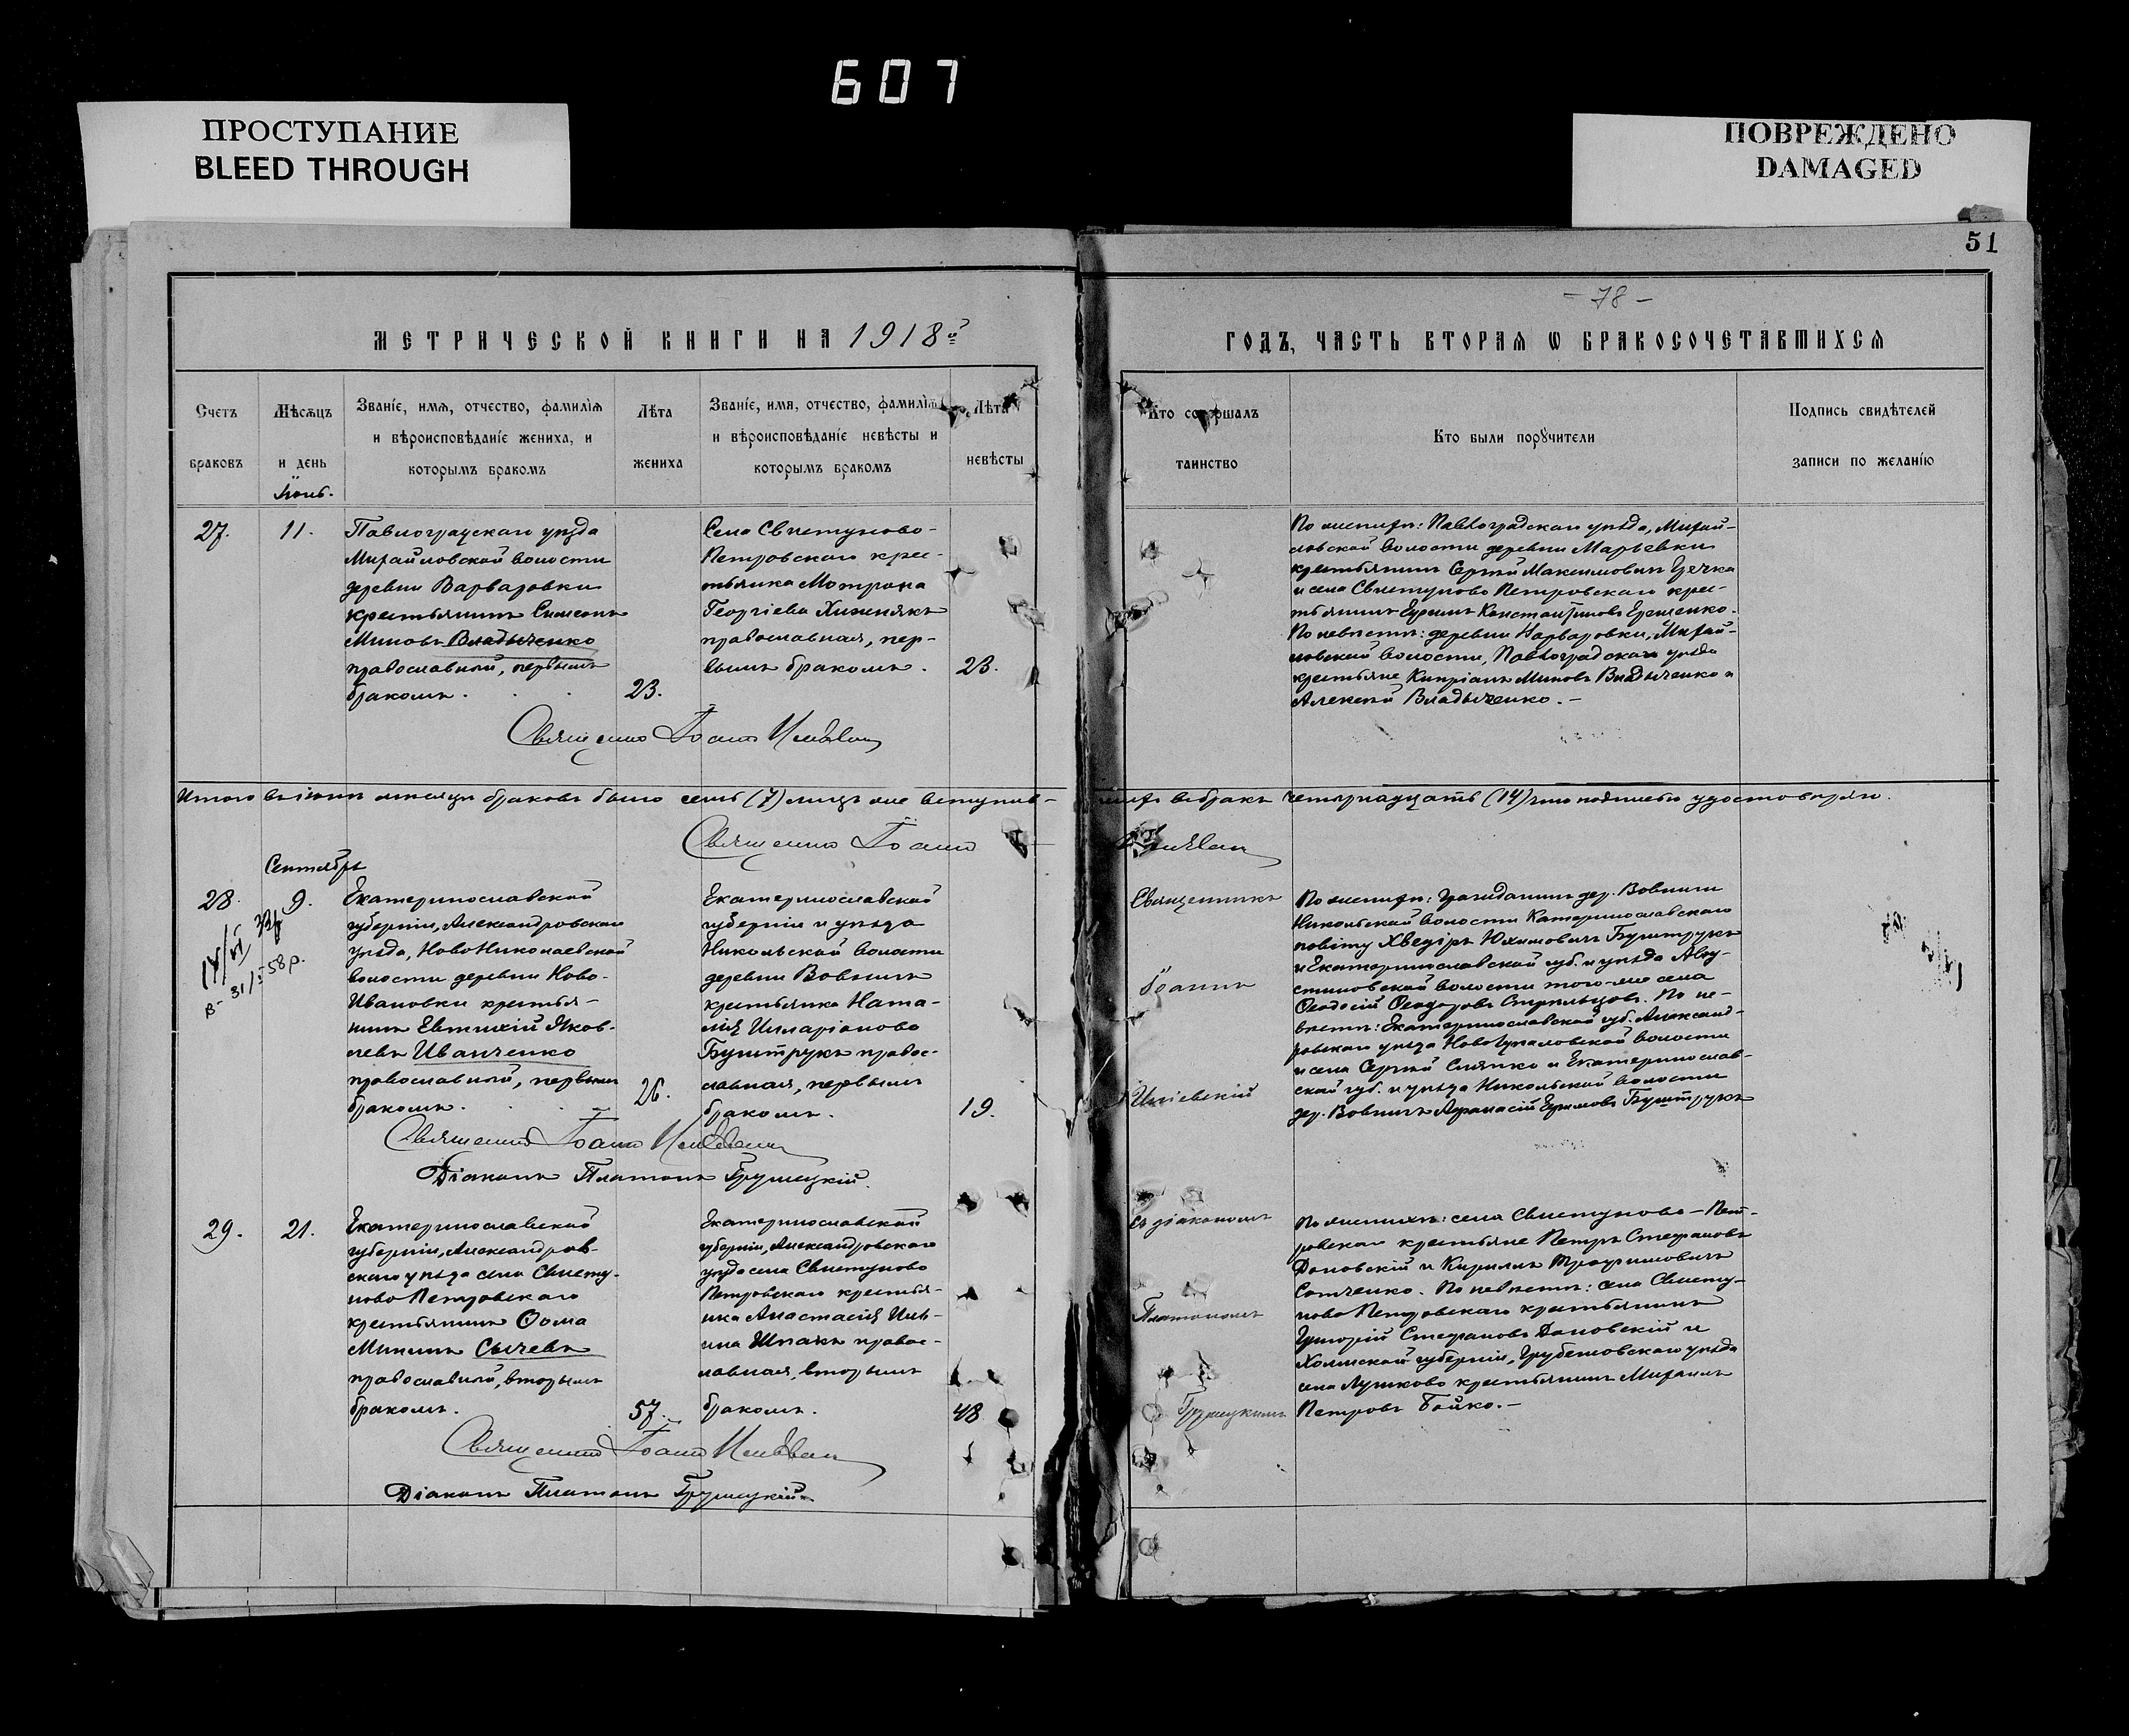 607
ПРОСТУПАНИЕ
BLEED THROUGH
ПОВРЕЖДЕНО
DAMAGED
51
- 78 -
МЕТРИЧЕСКОЙ КНИГИ НА 1918й
ГОДЪ, ЧАСТЬ ВТОРАЯ Ѡ БРАКОСОЧЕТАВШИХСЯ
Счетъ браковъ
Мѣсяцъ и день
Званіе, имя, отчество, фамилія и вѣроисповѣданіе жениха, и которымъ бракомъ
Лѣта жениха
Званіе, имя, отчество, фамилія и вѣроисповѣданіе невѣсты и которымъ бракомъ
Лѣта невѣсты
Кто совершалъ таинство
Кто были поручители
Подпись свидѣтелей записи по желанію
Іюнь.
27.
11.
Павлоградскаго уѣзда
Михайловской волости
деревни Варваровки
крестьянинъ Симеонъ
Миновъ Владыченко
православный, первымъ
бракомъ.
23.
Села Свистуново-
Петровскаго крес-
тьянка Мотрона
Георгіева Хижнякъ
православная, пер-
вымъ бракомъ.
23.
По женихѣ: Павлоградскаго уѣзда, Михай-
ловской волости деревни Марьевки
крестьянинъ Сергѣй Максимовичъ Гречка
и села Свистуново Петровскаго крес-
тьянинъ Ефимъ Константиновъ Ерещенко.
По невѣстѣ: деревни Варваровки, Михай-
ловской волости, Павлоградскаго уѣзда
крестьяне Кипріанъ Миновъ Владыченко и
Алексѣй Владыченко.-
Священникъ Іоаннъ
Итого въ іюнѣ мѣсяцѣ браковъ было семь (7) лицъ же вступив-
шихъ въ бракъ четырнадцать (14) что подписью удостовѣряю.
Священникъ Іоаннъ
Сентябрь
28.
9.
31/I-58 р.
Екатеринославской
губерніи, Александровскаго
уѣзда, НовоНиколаевской
волости деревни Ново-
Ивановки крестья-
нинъ Евтихій Яков-
левъ Иванченко
православный, первымъ
бракомъ.
26.
Екатеринославской
губерніи и уѣзда
Никольской волости
деревни Вовнигъ
крестьянка Ната-
лія Илларіонова
Бунтрукъ правос-
лавная, первымъ
бракомъ.
19.
Священникъ
Іоаннъ
По женихѣ: гражданинъ дер. Вовниги
Никольской волости Катеринославскаго
повіту Хведіръ Юхимовичъ Бунтрукъ
и Екатеринославской губ. и уѣзда Авгу-
стиновской волости того-же села
Ѳеодосій Ѳеодоровъ Стрѣльцовъ. По не-
вѣстѣ: Екатеринославской губ. Александ-
ровскаго уѣзда волости
и села Сергѣй и Екатеринослав-
ской губ. и уѣзда Никольской волости
дер. Вовнигъ Афанасій Ефимовъ Бунтрукъ
Священникъ Іоаннъ
Діаконъ Платонъ Грушецкій.
29.
21.
Екатеринославской
губерніи, Александров-
скаго уѣзда села Свисту-
ново Петровскаго
крестьянинъ Ѳома
Мининъ Сычевъ
православный, вторымъ
бракомъ.
57.
Екатеринославской
губерніи, Александровскаго
уѣзда села Свистуново
Петровскаго крестья-
нка Анастасія Иль-
ина Шпакъ правос-
лавная, вторымъ
бракомъ.
48
съ діакономъ
Платономъ
Грушецкимъ
По женихѣ: села Свистуново-Пет-
ровскаго крестьяне Петръ Стефановъ
Дановскій и Кириллъ Трофимовичъ
Сотченко. По невѣстѣ: села Свисту-
ново Петровскаго крестьянинъ
Григорій Стефановъ Дановскій и
Холмской губерніи, Грубешовскаго уѣзда
села Лушково крестьянинъ Михаилъ
Петровъ Бойко.-
Священникъ Іоаннъ
Діаконъ Платонъ Грушецкій